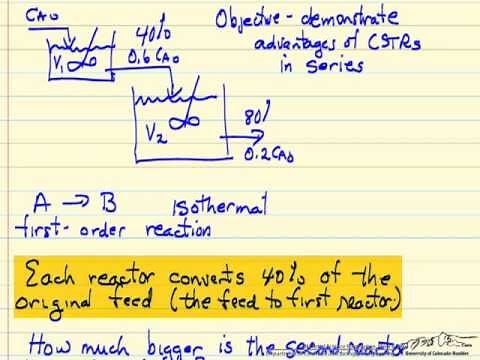 CAO
40%
0.6 CAO
V1
V2
80%
0.2 CAO
Objective - demonstrate
advantages of CSTRs
in series
A → B isothermal
first-order reaction
Each reactor converts 40% of the
original feed (the feed to first reactor)
How much bigger is the second reactor
University of Colorado Boulder